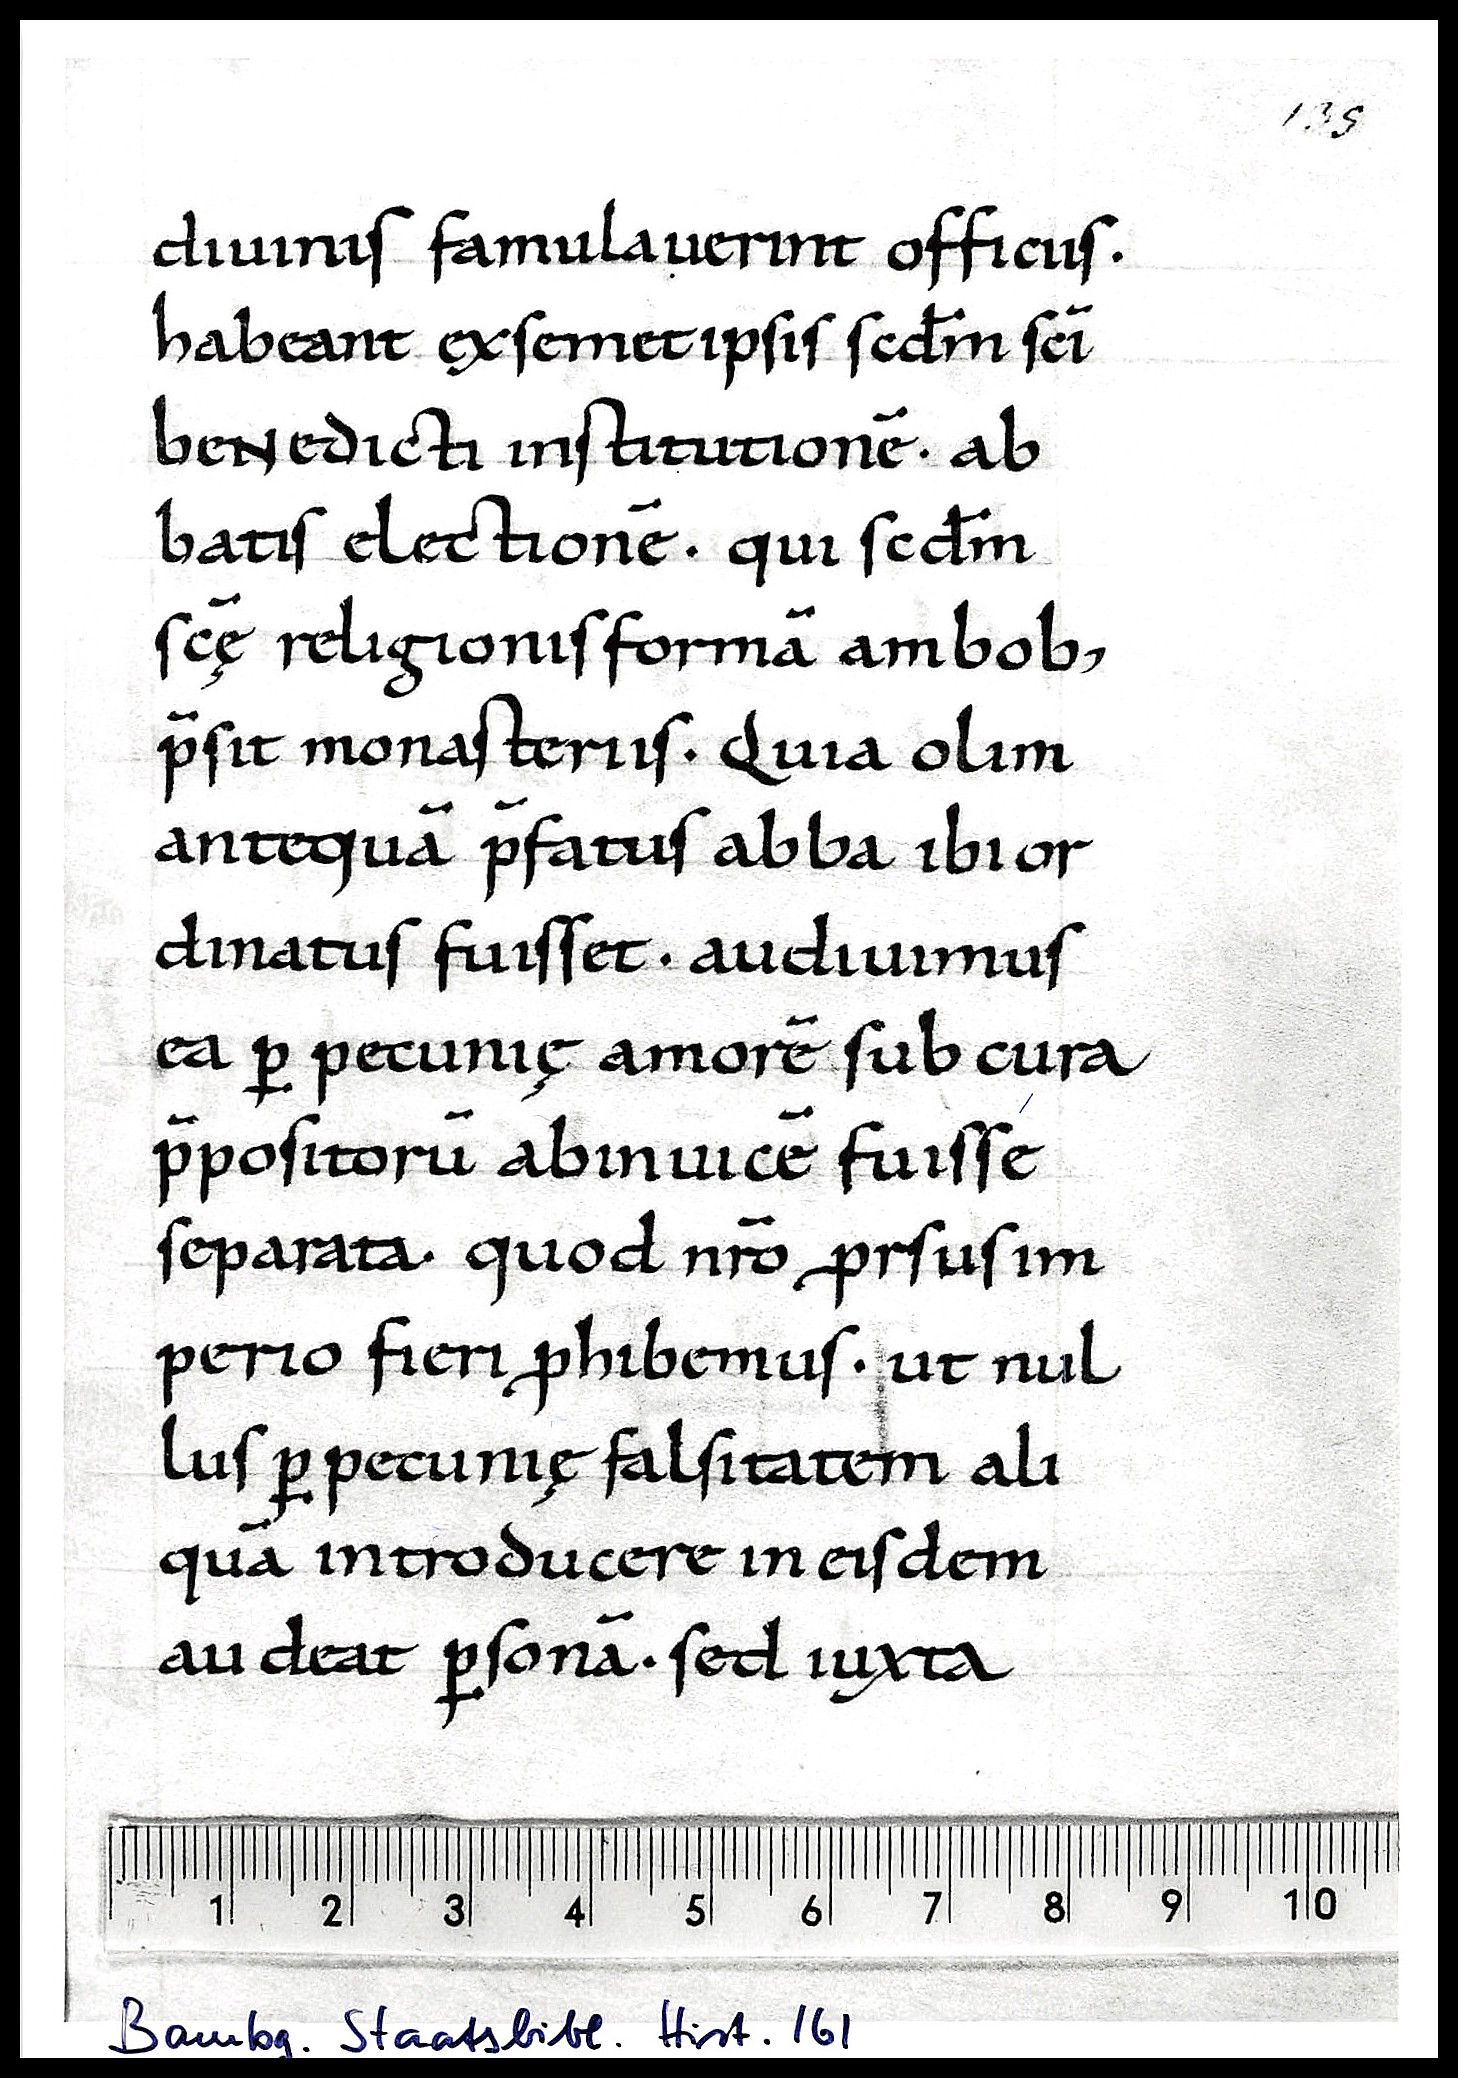 139
diuinis famulauerint officiis.
habeant ęxsemetipsis scd̄m sc̄i
beNedicti institutionē. ab
batis electionē. qui scd̄m
sc̄ę religionis formā ambob,
p̄sit monasteriis. Quia olim
antequā p̄fatus abba ibi or
dinatus fuisset. audiuimus
ea ꝑ pecunię amorē sub cura
p̄positorū abinuicē fuisse
separata. quod nr̄o ꝓrsus im
perio fieri ꝓhibemus. ut nul
lus ꝑ pecunię falsitatem ali
quā introducere in eisdem
audeat ꝑsonā. sed iuxta
1 2 3 4 5 6 7 8 9 10
Bambg. Staatsbibl. Hist. 161